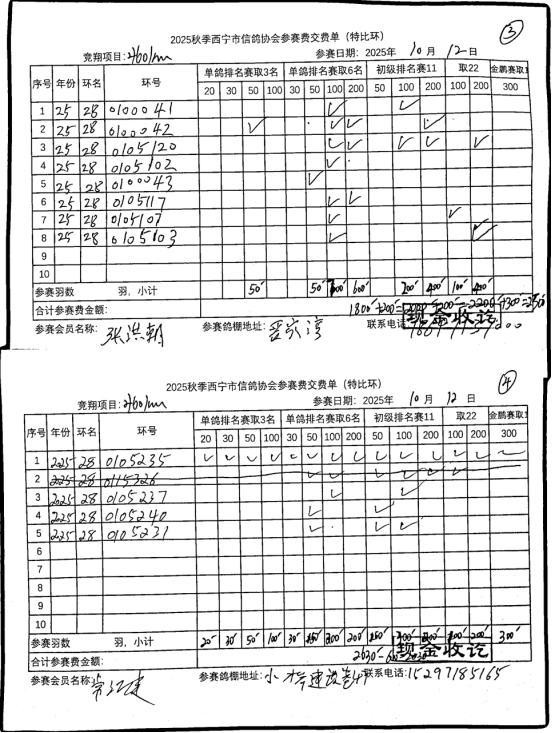 ③
2025秋季西宁市信鸽协会参赛费交费单（特比环）
竞翔项目: 460km 参赛日期: 2025年 10 月 12 日
序号 年份 环名 环号 单鸽排名赛取3名 单鸽排名赛取6名 初级排名赛11 取22 金鹏赛取1
20 30 50 100 30 50 100 200 50 100 200 100 200 300
1 25 28 0100041 ✓ ✓
2 25 28 0100042 ✓ ✓ ✓ ✓
3 25 28 0105120 ✓ ✓ ✓ ✓ ✓
4 25 28 0105102 ✓
5 25 28 0100043 ✓
6 25 28 0105117 ✓ ✓
7 25 28 0105107 ✓ ✓
8 25 28 0105103 ✓ ✓
9
10
参赛羽数 羽, 小计 50 50 600 200 400 100 400
合计参赛费金额: 1800
现金收讫
参赛会员名称: 张洪朝 参赛鸽棚地址: 晋家湾 联系电话
④
2025秋季西宁市信鸽协会参赛费交费单（特比环）
竞翔项目: 460km 参赛日期: 2025年 10 月 12 日
序号 年份 环名 环号 单鸽排名赛取3名 单鸽排名赛取6名 初级排名赛11 取22 金鹏赛取1
20 30 50 100 30 50 100 200 50 100 200 100 200 300
1 2025 28 0105235 ✓ ✓ ✓ ✓ ✓ ✓ ✓ ✓ ✓ ✓ ✓ ✓ ✓ ✓
2 2025 28 0115326 ✓ ✓ ✓ ✓ ✓ ✓
3 2025 28 0105237 ✓ ✓
4 2025 28 0105240 ✓ ✓
5 2025 28 0105231 ✓ ✓ ✓
6
7
8
9
10
参赛羽数 羽, 小计 20 30 50 100 30 150 200 200 150 300 200 100 200 300
合计参赛费金额: 2030
现金收讫
参赛会员名称: 参赛鸽棚地址: 小桥建设巷 联系电话: 15297185165